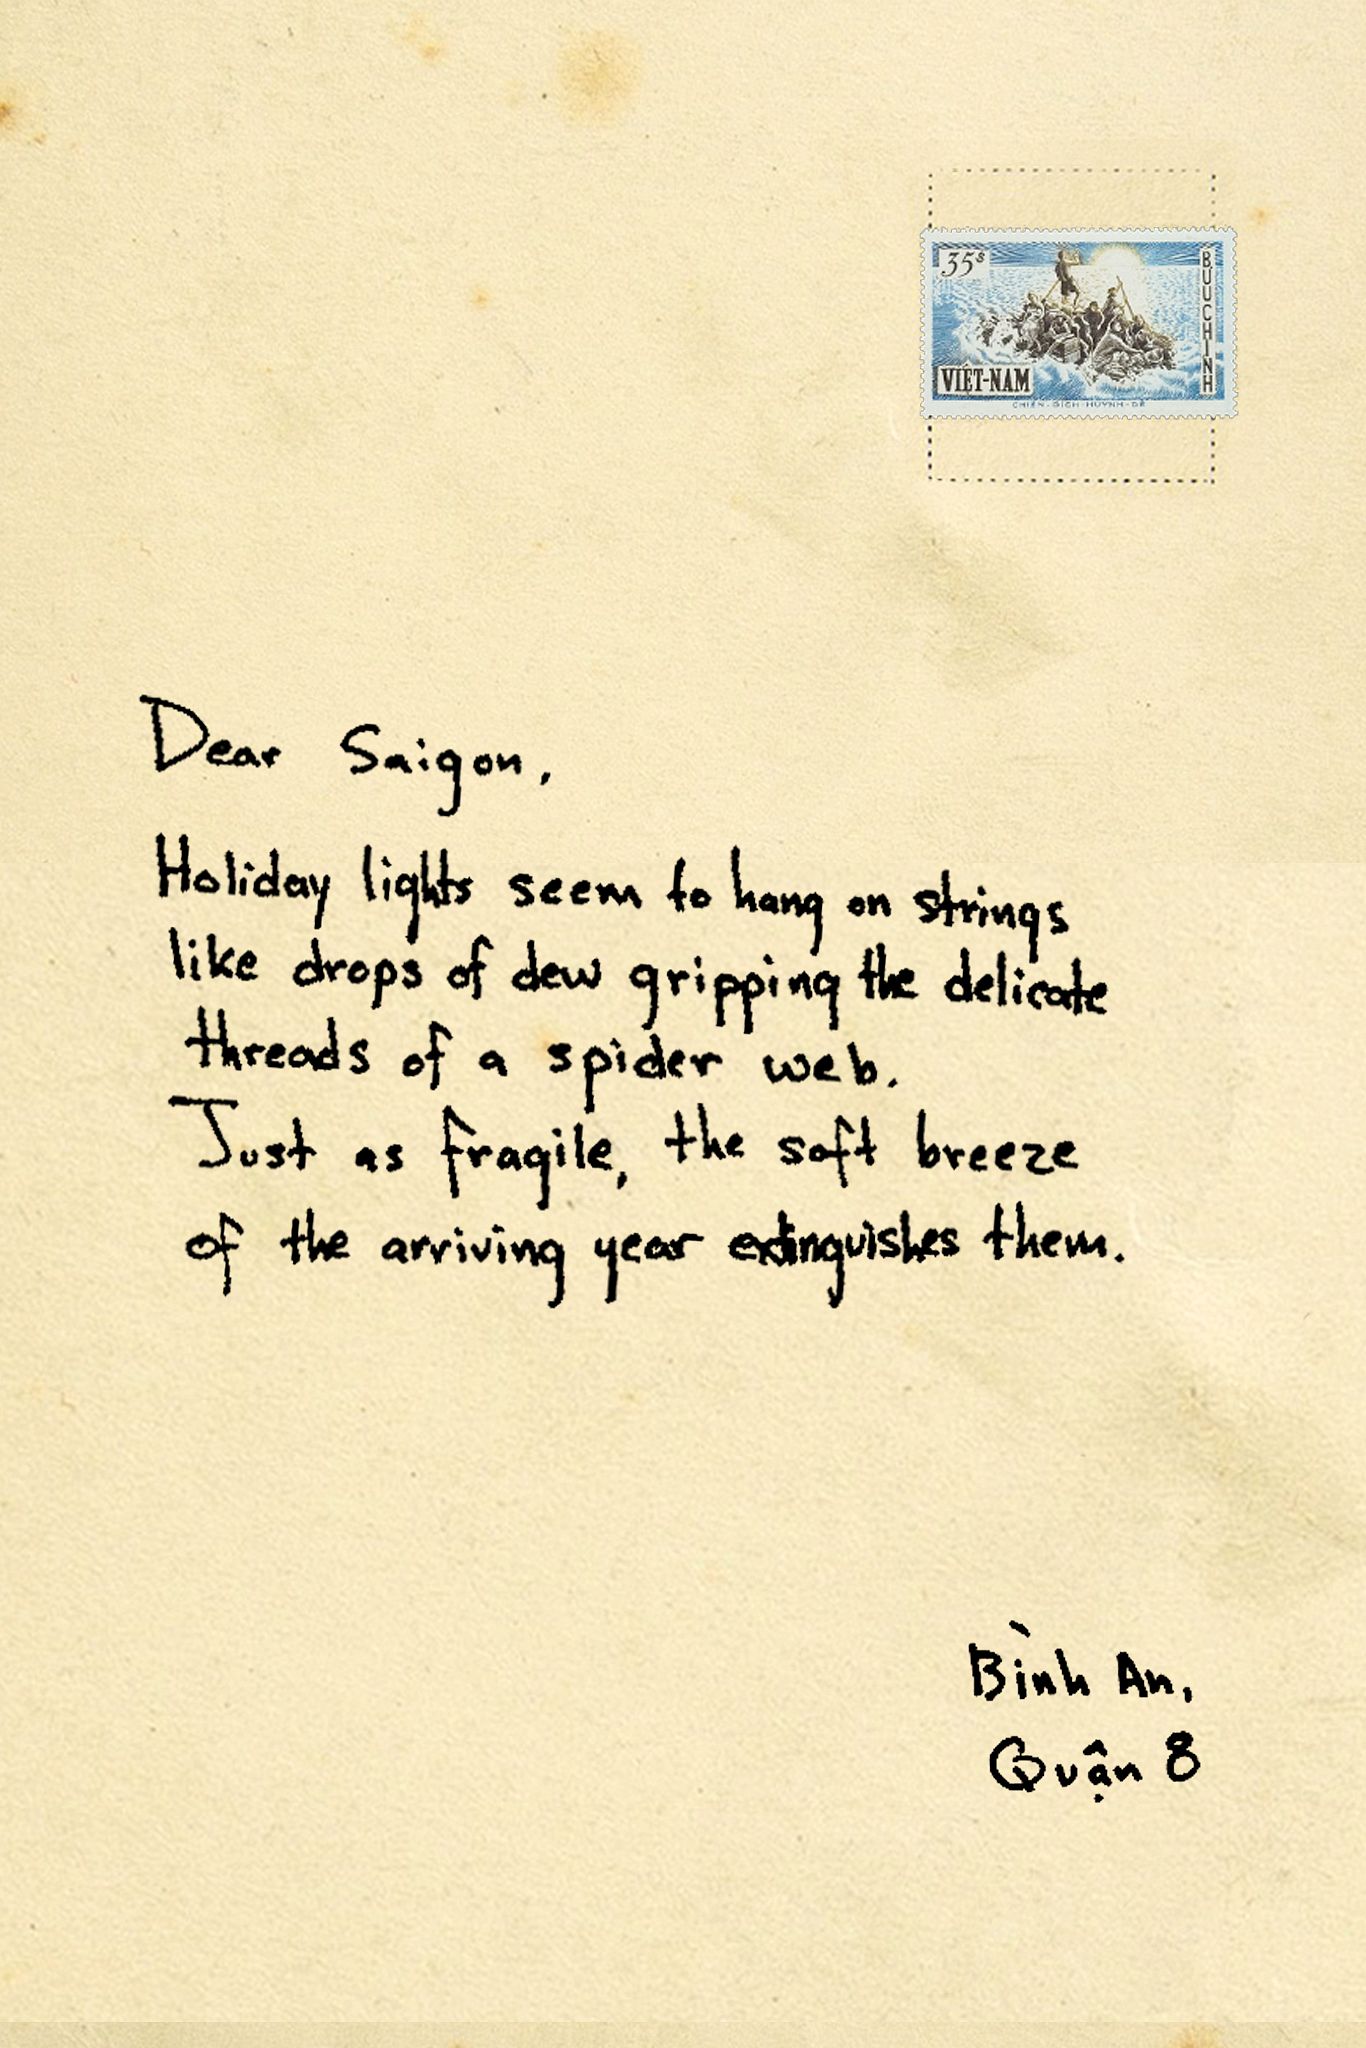 35$
BƯU CHÍNH
VIỆT-NAM
CHIẾN-DỊCH-HUYNH-ĐỆ
Dear Saigon,
Holiday lights seem to hang on strings
like drops of dew gripping the delicate
threads of a spider web.
Just as fragile, the soft breeze
of the arriving year extinguishes them.
Bình An,
Quận 8